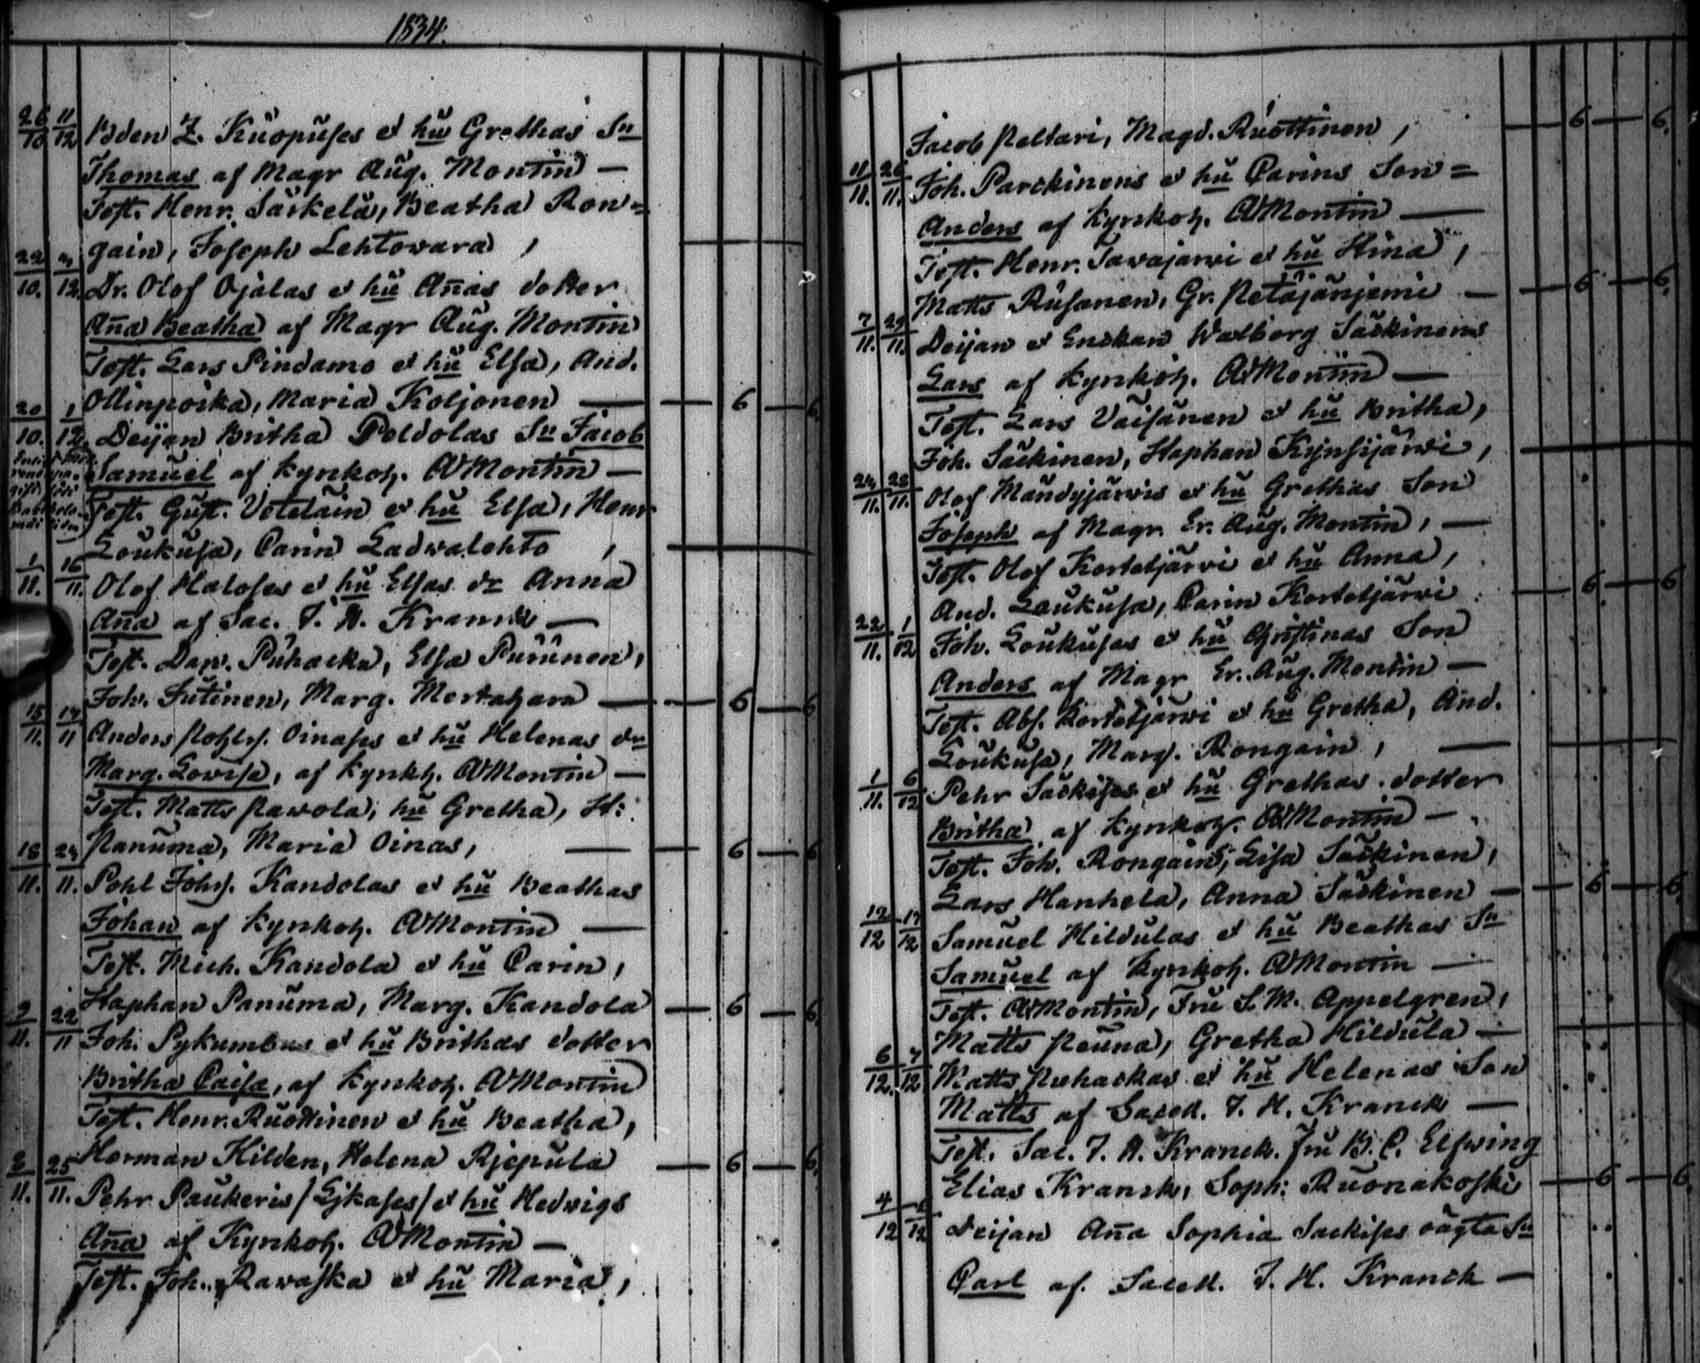 1834.
26/10 11/12 Bden Z. Kuopuses et hu Grethas Sn
Thomas af Magr Aug. Montin —
Test. Henr. Särkelä, Beatha Ron=
gain, Joseph Lehtovara,
22/10. 12. Dr. Olof Ojalas et hu Añas dotter
Aña Beatha af Magr Aug. Montin
Test. Lars Pindamo et hu Elsa, And.
Ollinpoika, Maria Koljonen — 6 — 6
20/10. 1/12. Deijan Britha Poldolas Sn Jacob
Samuel af Kyrkoh. AMontin —
Test. Gust. Votelain et hu Elsa, Henr
Loukusa, Carin Ladvalehto,
1/11. 16/11. Olof Haloses et hu Elsas dr Anna
Aña af Sac. J. H. Kranck —
Test. Dav. Puhacka, Elsa Purunen,
Joh. Jutinen, Marg. Mertajara — 6 — 6
15/11. 17/11 Anders Pohls. Oinases et hu Helenas dr
Marg. Lovisa, af Kyrkh. AMontin —
Test. Matts Pavola, hu Gretha, H:
Panuma, Maria Oinas, — 6 — 6
18/11. 24/11. Pohl Johs. Kandolas et hu Beathas
Johan af Kyrkoh. AMontin —
Test. Mich. Kandola et hu Carin,
Staphan Panuma, Marg. Kandola — 6 — 6
9/11. 22/11 Joh: Pykumbus et hu Brithas dotter
Britha Caisa, af Kyrkoh. AMontin
Test. Henr. Ruottinen et hu Beatha,
Herman Hilden, Helena Rjepula — 6 — 6.
2/11. 25/11. Pehr Paukeris / Lykases / et hu Hedvigs
Aña af Kyrkoh. AMontin —
Test. Joh. Ravaska et hu Maria,
Jacob Peltari, Magd. Ruottinen, — 6 — 6.
11/11. 26/11. Joh. Parckinens et hu Carins Son =
Anders af Kyrkoh. AMontin —
Test. Henr. Tavajarvi et hu Stina,
Matts Rusanen, Gr. Petäjänjemi — 6 — 6.
7/11. 29/11. Deijan et Enckan Walborg Säckinens
Lars af Kyrkoh. AMontin —
Test. Lars Väisänen et hu Britha,
Joh. Säckinen, Staphan Kynsijärvi,
24/11. 28/11. Olof Mandyjärvis et hu Grethas Son
Joseph af Magr. Er. Aug. Montin, —
Test. Olof Kortetjärvi et hu Anna,
And. Laukusa, Carin Kortetjärvi — 6 — 6
22/11. 1/12 Joh. Loukusas et hu Christinas Son
Anders af Magr Er. Aug. Montin —
Test. Abs. Kortetjärvi et hu Gretha, And.
Loukusa, Marg. Rongain, —
1/11. 6/12 Pehr Säckises et hu Grethas dotter
Britha af Kyrkoh. AMontin —
Test. Joh. Rongain, Lisa Säckinen,
Lars Hanhela, Anna Säckinen — 6 — 6.
12/12 17/12 Samuel Hildulas et hu Beathas Sn
Samuel af Kyrkoh. AMontin —
Test. AMontin, Fru S. M. Appelgren,
Matts Neuna, Gretha Hildula —
6/12. 7/12 Matts Puhackas et hu Helenas Son
Matts af Saced. J. H. Kranck —
Test. Sac. J. H. Kranck. Fru B. C. Elfving
Elias Kranck, Soph: Ruonakoski — 6 — 6.
4/12 /12 Deijan Aña Sophia Säckises oägta Sn
Carl af Saced. J. H. Kranck —